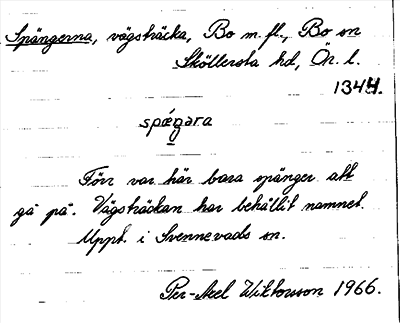 Spängerna, vägsträcka, Bo m.fl., Bo sn
Sköllersta hd, Ör. l.
1344.
Förr var här bara spänger att
gå på. Vägsträckan har behållit namnet.
Uppt. i Svennevads sn.
Per-Axel Wiktorsson 1966.